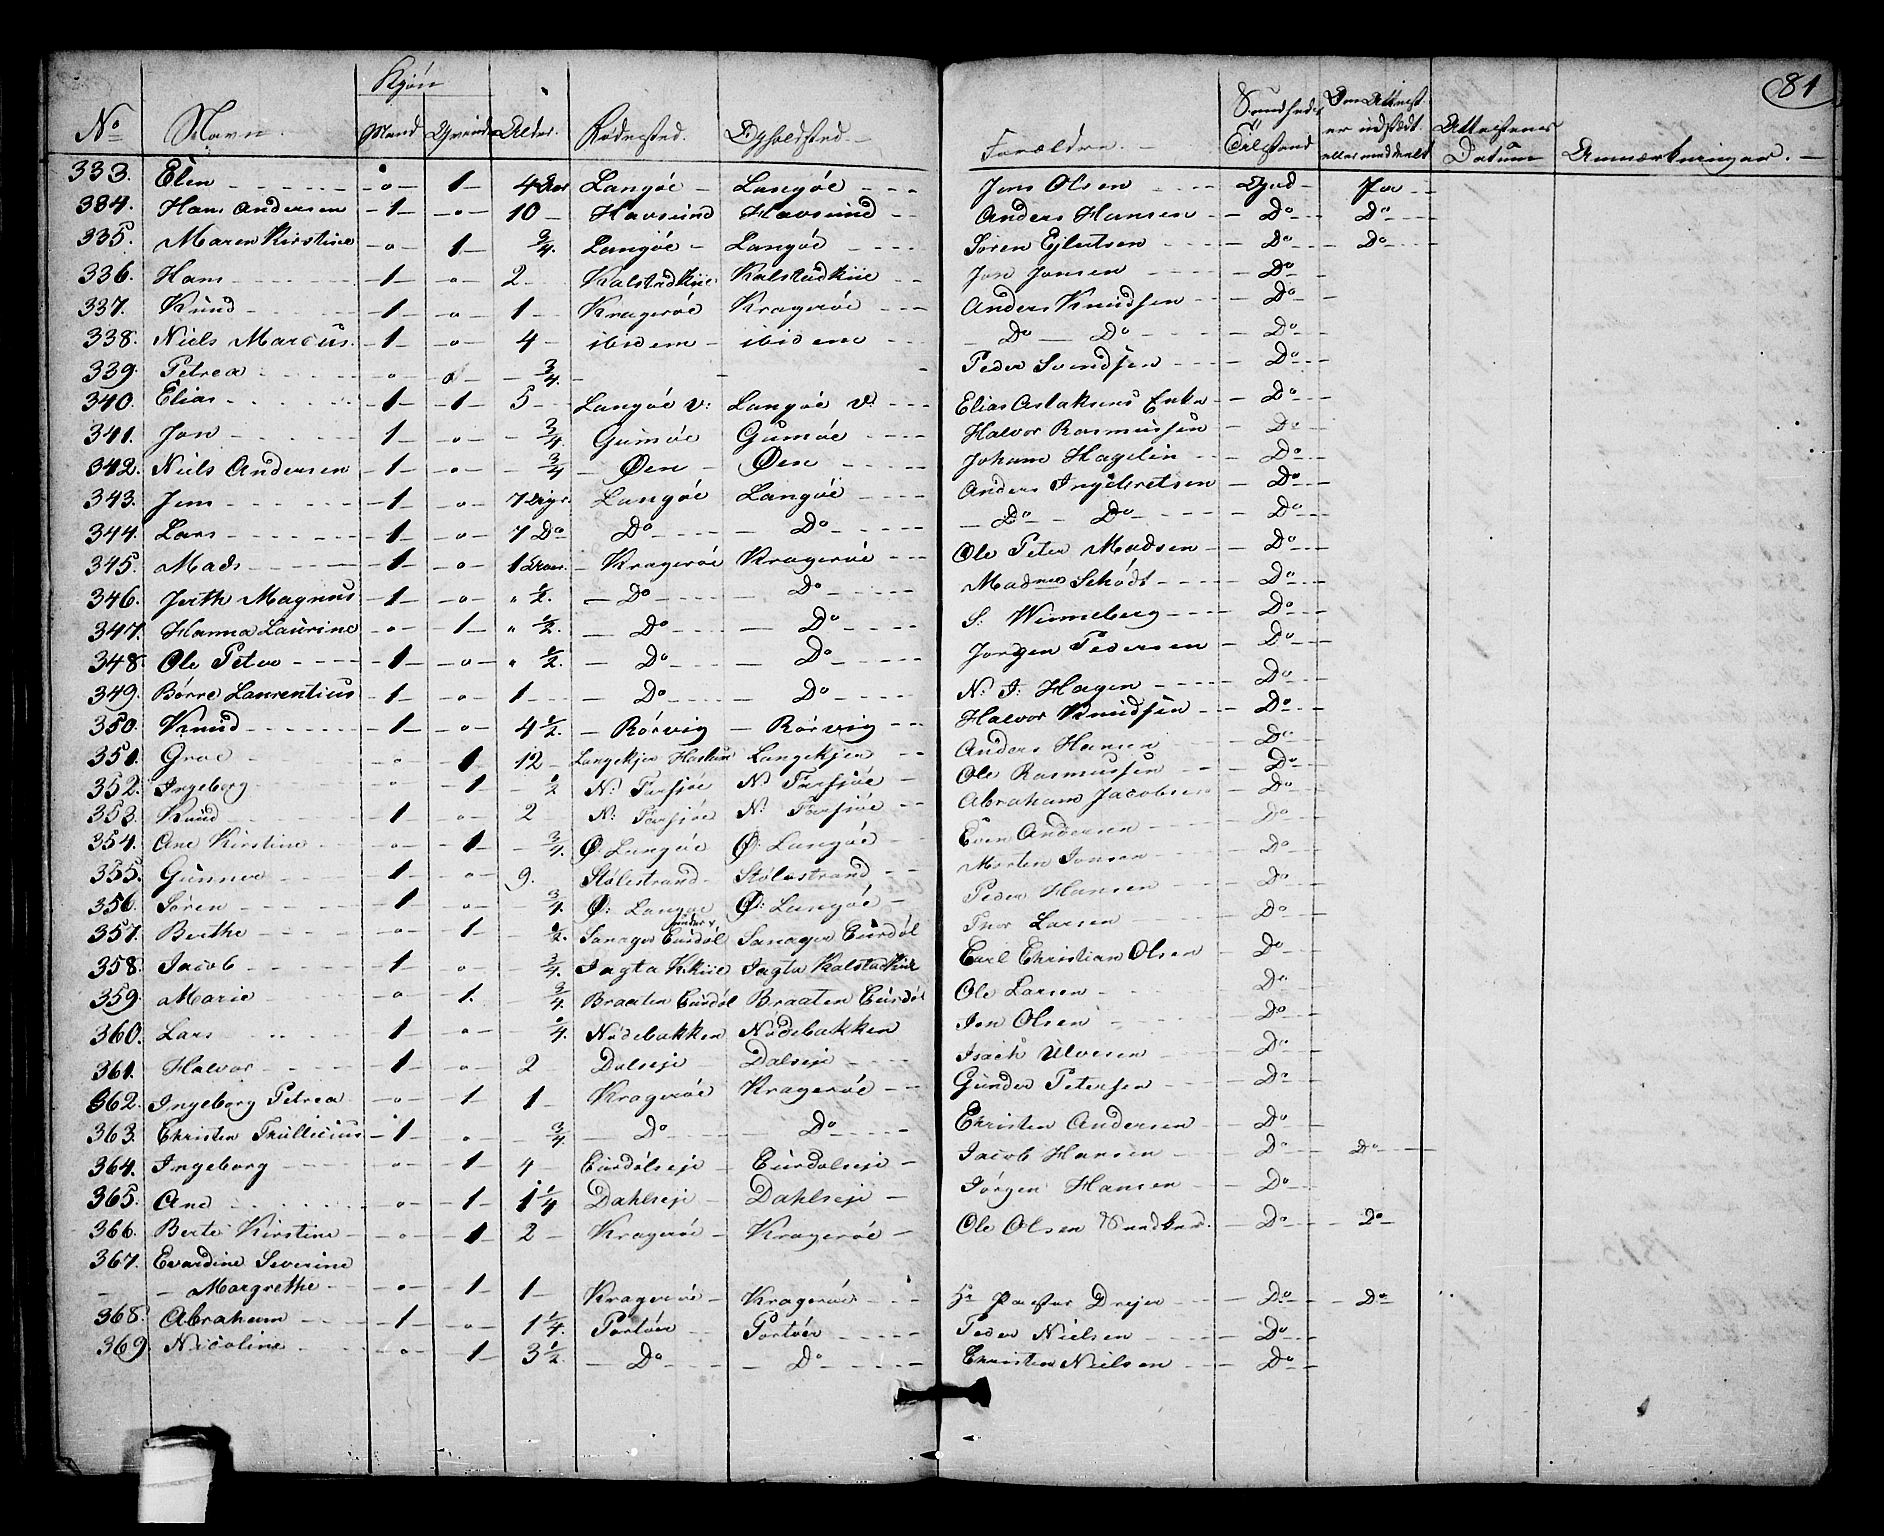 81
Kjön
No Navn. Mand Qvinde Alder. Födested. Opholdsted. Forældre. Sundheds Tilstand Om Attest er udstædt eller meddeelt Attestens Datum Anmærkninger.
333. Elen o 1 4 Aar Langöe Langöe Jens Olsen God Ja
334. Hans Andersen 1 o 10 Havsund Havsund Anders Hansen Do Do
335. Maren Kirstine o 1 3/4 Langöe Langöe Sören Ejlertsen Do Do
336. Hans 1 o 2 Kalstadkiie Kalstadkiie Jon Jensen Do
337. Knud 1 o 1 Krageröe Krageröe Anders Knudsen Do
338. Niels Marcus 1 o 4 ibidem ibidem Do Do Do
339. Petrea o o 3/4 Peder Svendsen Do
340. Elias 1 1 5 Langöe v: Langöe v: Elias Aslaksens Enke Do
341. Jon 1 o 3/4 Gumöe Gumöe Halvor Rasmussen Do
342. Niels Andersen 1 o 3/4 Öen Öen Johann Hagelin Do
343. Jens 1 o 7 Dage Langöe Langöe Anders Ingebretsen Do
344. Lars 1 o 7 Do Do Do Do Do Do
345. Mads 1 o 1 Aar Krageröe Krageröe Ole Peter Madsen Do
346. Jerth Magnus 1 o " 1/2. Do Do Madme Schödt Do
347. Hanna Laurine o 1 " 1/2. Do Do S: Winneberg Do
348. Ole Peter 1 o " 1/2. Do Do Jörgen Pedersen Do
349. Börre Laurentius 1 o 1 Do Do N: J: Hagen Do
350. Knud 1 o 4 1/2. Rörvig Rörvig Halvor Knudsen Do
351. Groe o 1 12 Langekjen Langekjen Anders Hansen Do
352. Ingeborg o 1 1/2 N: Farsjöe N: Farsjöe Ole Rasmussen Do
353. Knud 1 o 2 N: Farsjöe N: Farsjöe Abraham Jacobsen Do
354. Ane Kirstine o 1 3/4. Ö: Langöe Ö: Langöe Even Andersen Do
355. Gunner 1 o 9. Stölestrand Stölestrand Morten Jensen Do
356. Sören 1 o 3/4. Ö: Langöe Ö: Langöe Peder Hansen Do
357. Berthe o 1 1/2. Sanager under Eurdöl Sanager Eurdöl Thor Larsen Do
358. Jacob 1 o 3/4. Jagta Kkiie Jagta Kalstadkiie Carl Christian Olsen Do
359. Marie o 1. 3/4. Braaten Eurdöl Braaten Eurdöl Ole Larsen Do
360. Lars 1 o 1/4. Nödebakken Nödebakken Jon Olsen Do
361. Halvor 1 o 2 Dalseje Dalseje Isach Ulvesen Do
362. Ingeborg Petrea o 1 1 Krageröe Krageröe Gunder Petersen Do
363. Christen Thullicius 1 o 3/4. Do Do Christen Andersen Do
364. Ingeborg o 1 4 Eurdölseje Eurdölseje Jacob Hansen Do Do
365. Ane o 1 1 1/4 Dahlseje Dahlseje Jörgen Hansen Do
366. Berte Kirstine o 1 2 Krageröe Krageröe Ole Olsen Do Do
367. Evardine Severine
Margrethe o 1 1 Krageröe Krageröe Hr Pastor Drejer Do Do
368. Abraham 1 o 1 1/4. Portöer Portöer Peder Nielsen Do
369. Nicoline o 1 3 1/2. Do Do Christen Nielsen Do